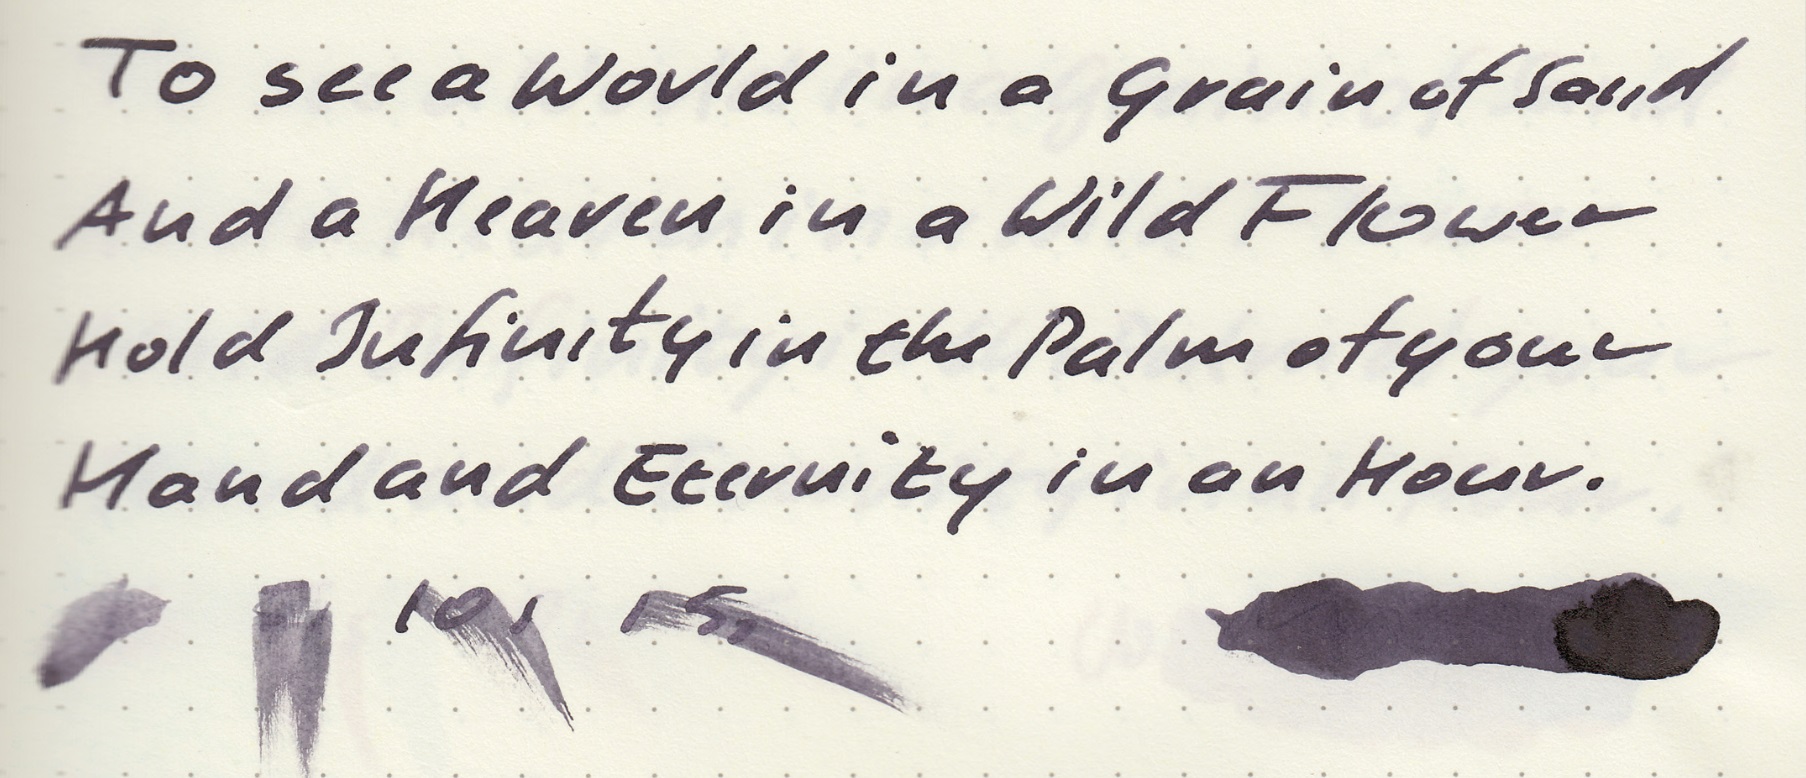 To see a World in a Grain of Sand
And a Heaven in a Wild Flower
Hold Infinity in the Palm of your
Hand and Eternity in an Hour.
10' 15'